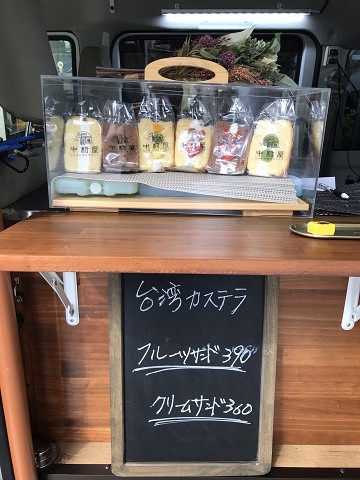 台湾カステラ
フルーツサンド390
クリームサンド360